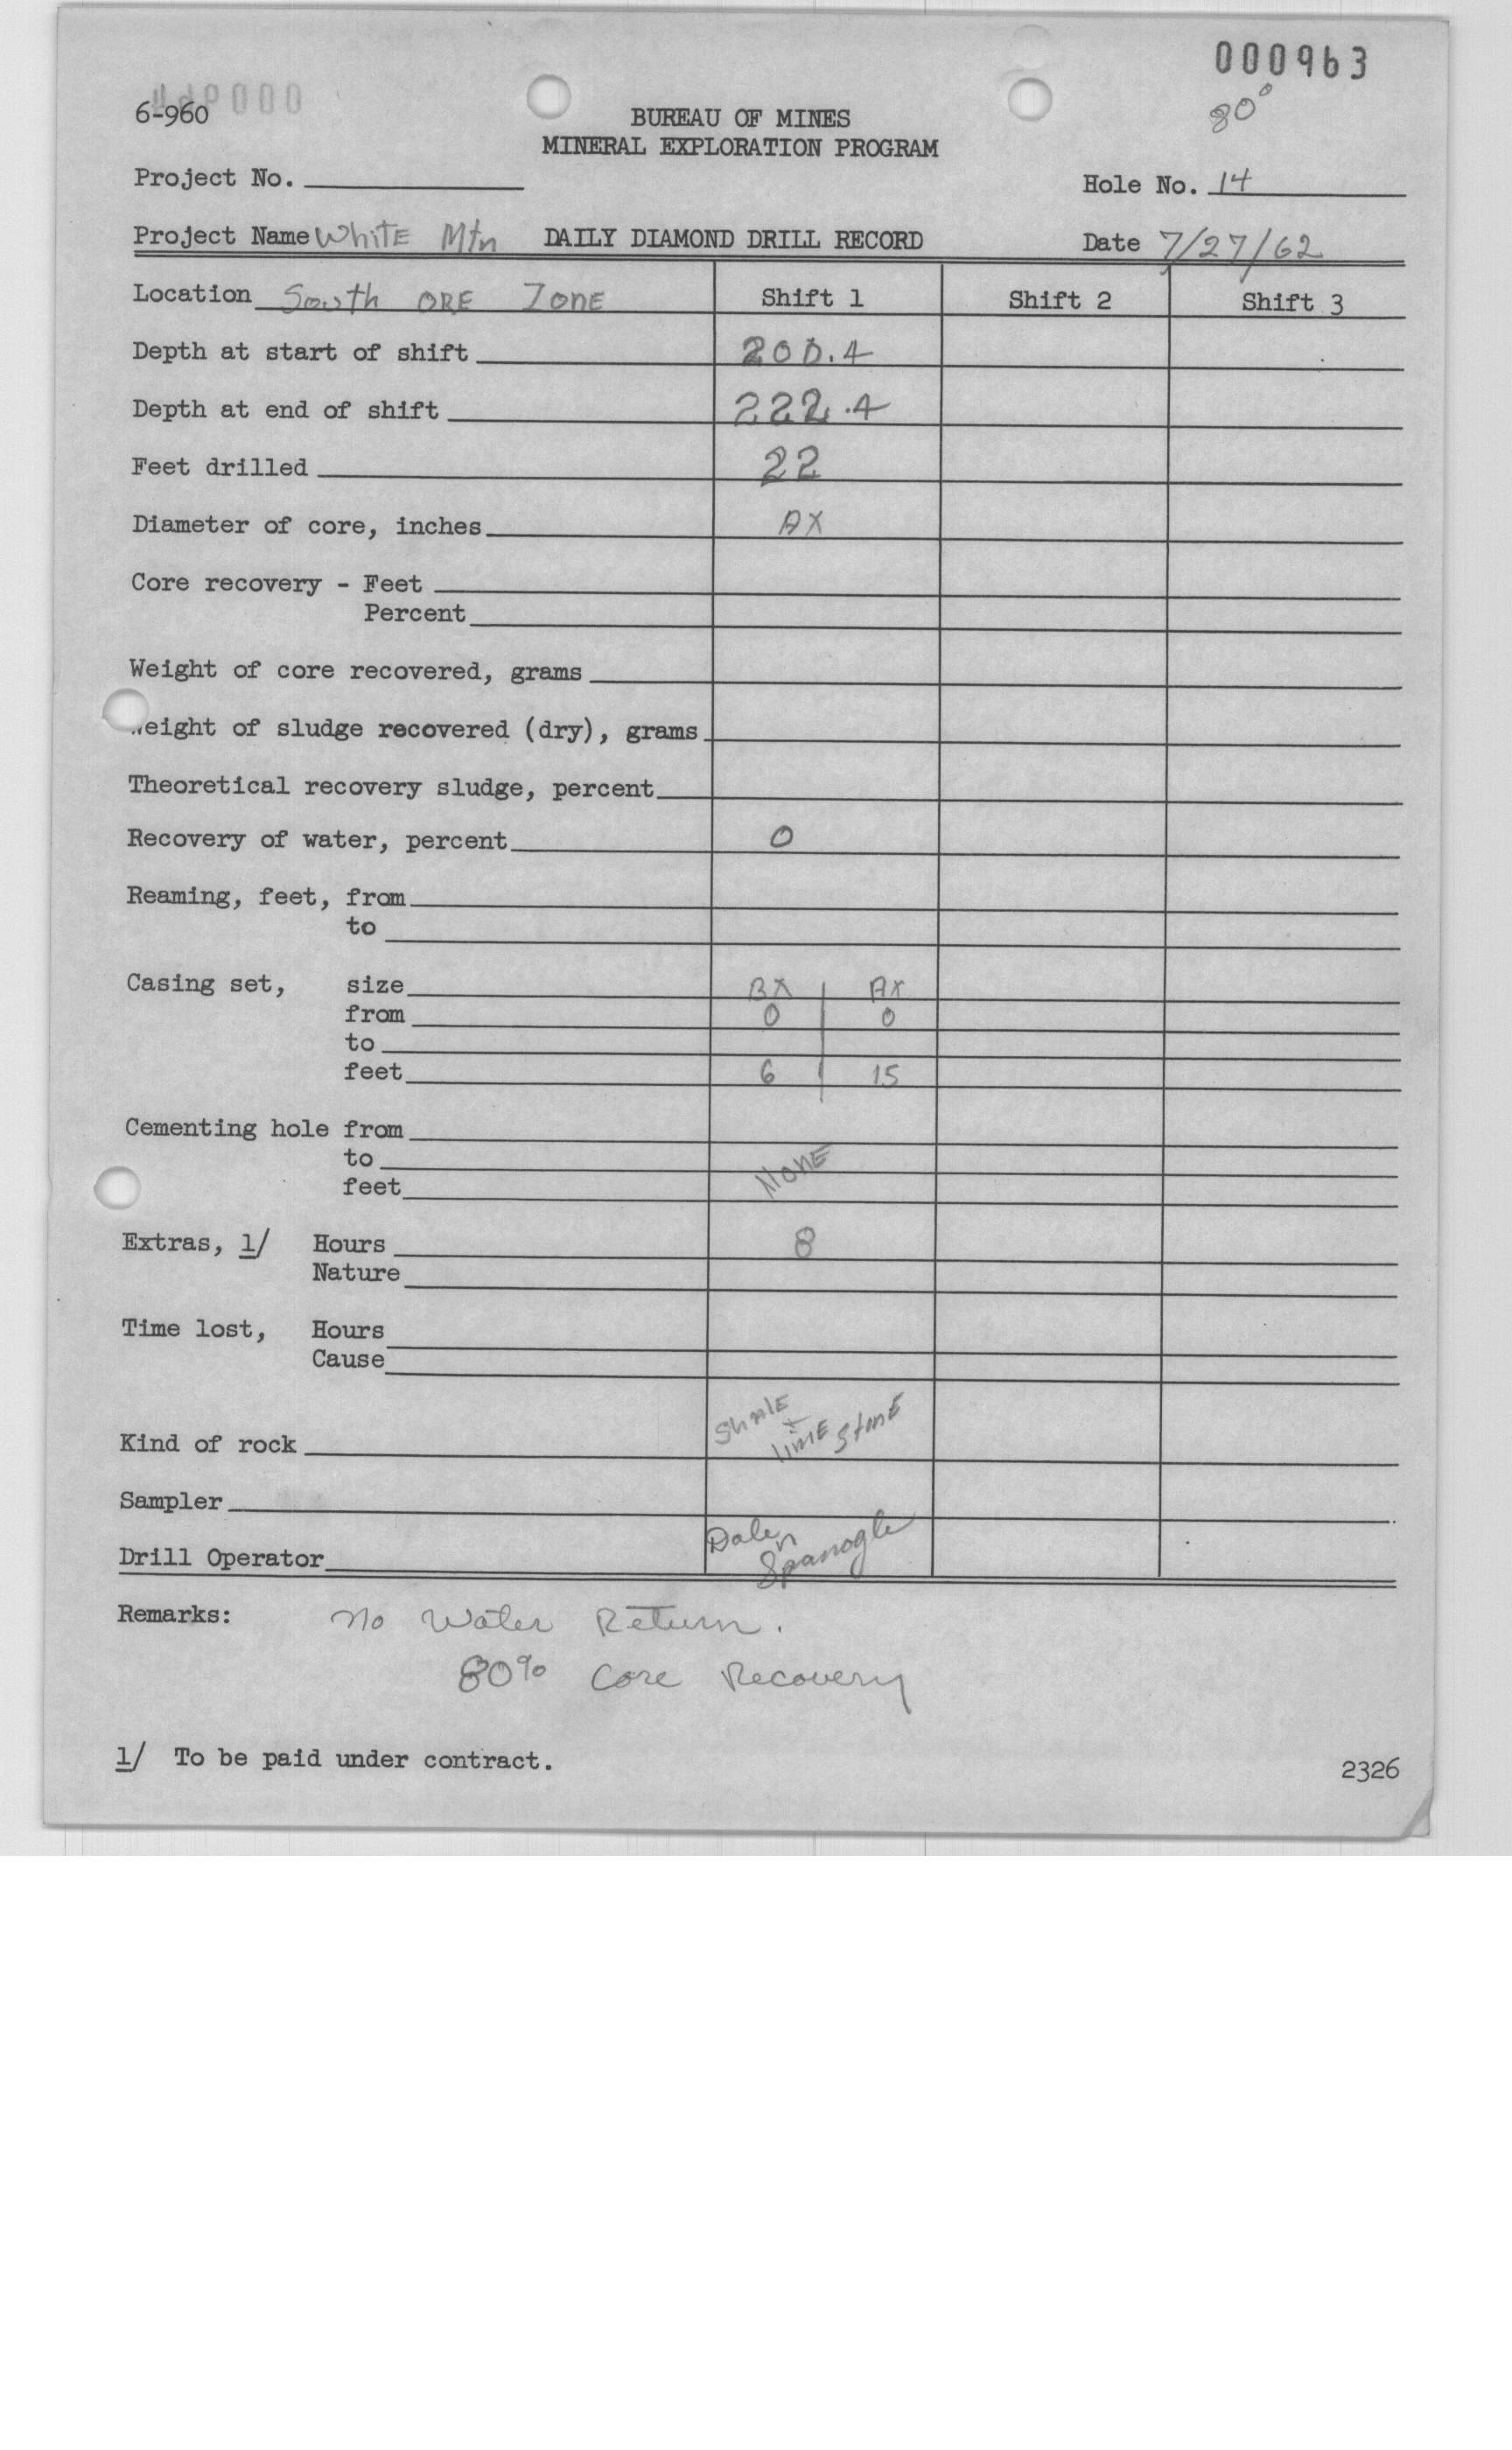 000963
80°
6-960
BUREAU OF MINES
MINERAL EXPLORATION PROGRAM
Project No.
Hole No. 14
Project Name White Mtn DAILY DIAMOND DRILL RECORD Date 7/27/62
Location South ORE Zone Shift 1 Shift 2 Shift 3
Depth at start of shift 200.4
Depth at end of shift 222.4
Feet drilled 22
Diameter of core, inches AX
Core recovery - Feet
Percent
Weight of core recovered, grams
eight of sludge recovered (dry), grams
Theoretical recovery sludge, percent
Recovery of water, percent 0
Reaming, feet, from
to
Casing set, size BX AX
from 0 0
to
feet 6 15
Cementing hole from
to None
feet
Extras, 1/ Hours 8
Nature
Time lost, Hours
Cause
Kind of rock Shale + limestone
Sampler
Drill Operator Dale Spanogle
Remarks: No Water Return.
80% Core Recovery
1/ To be paid under contract.
2326